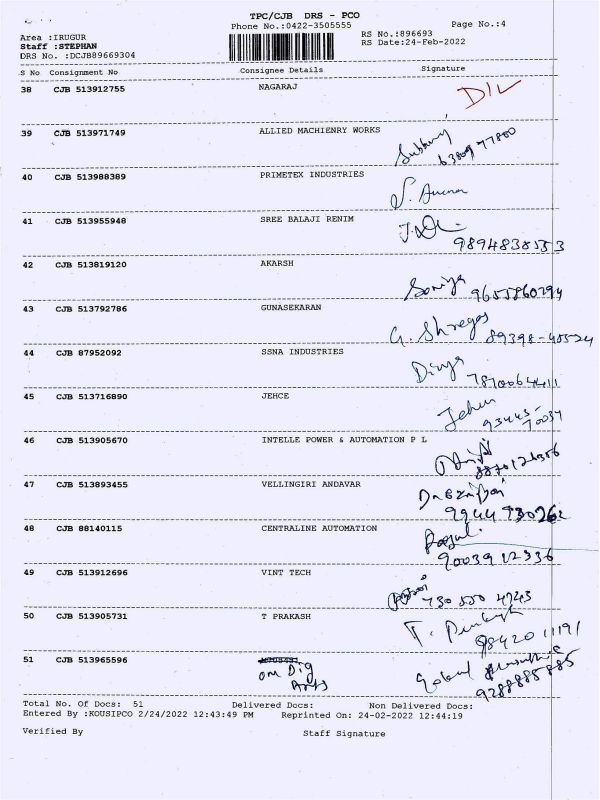 TPC/CJB DRS - PCO
Phone No.:0422-3505555 Page No.:4
Area :IRUGUR RS No.:896693
Staff :STEPHAN RS Date:24-Feb-2022
DRS No. :DCJB89669304
S No Consignment No Consignee Details Signature
38 CJB 513912755 NAGARAJ
39 CJB 513971749 ALLIED MACHIENRY WORKS
40 CJB 513988389 PRIMETEX INDUSTRIES
41 CJB 513955948 SREE BALAJI RENIM
9894838553
42 CJB 513819120 AKARSH
43 CJB 513792786 GUNASEKARAN
G. Shreyas
44 CJB 87952092 SSNA INDUSTRIES
Divya
45 CJB 513716890 JEHCE
93445-70034
46 CJB 513905670 INTELLE POWER & AUTOMATION P L
47 CJB 513893455 VELLINGIRI ANDAVAR
48 CJB 88140115 CENTRALINE AUTOMATION
9003912336
49 CJB 513912696 VINT TECH
50 CJB 513905731 T PRAKASH
9842011191
51 CJB 513965596
om Dig
Arts
9288885885
Total No. Of Docs: 51 Delivered Docs: Non Delivered Docs:
Entered By :KOUSIPCO 2/24/2022 12:43:49 PM Reprinted On: 24-02-2022 12:44:19
Verified By Staff Signature